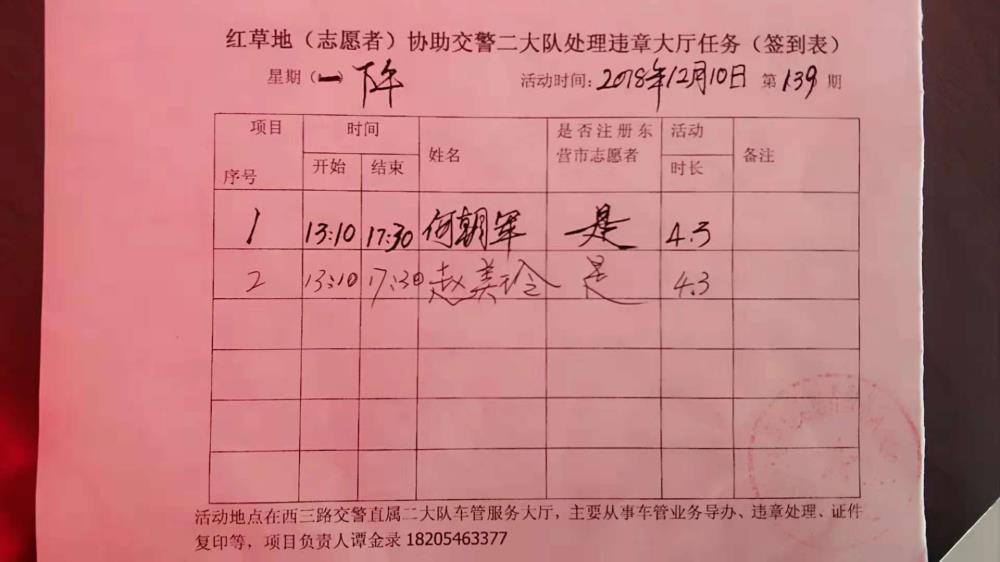 红草地（志愿者）协助交警二大队处理违章大厅任务（签到表）
星期（一）下午 活动时间：2018年12月10日 第139期
项目 时间 姓名 是否注册东营市志愿者 活动时长 备注
序号 开始 结束
1 13:10 17:30 何朝军 是 4.3
2 13:10 17:30 赵美玲 是 4.3
活动地点在西三路交警直属二大队车管服务大厅，主要从事车管业务导办、违章处理、证件
复印等，项目负责人谭金录 18205463377